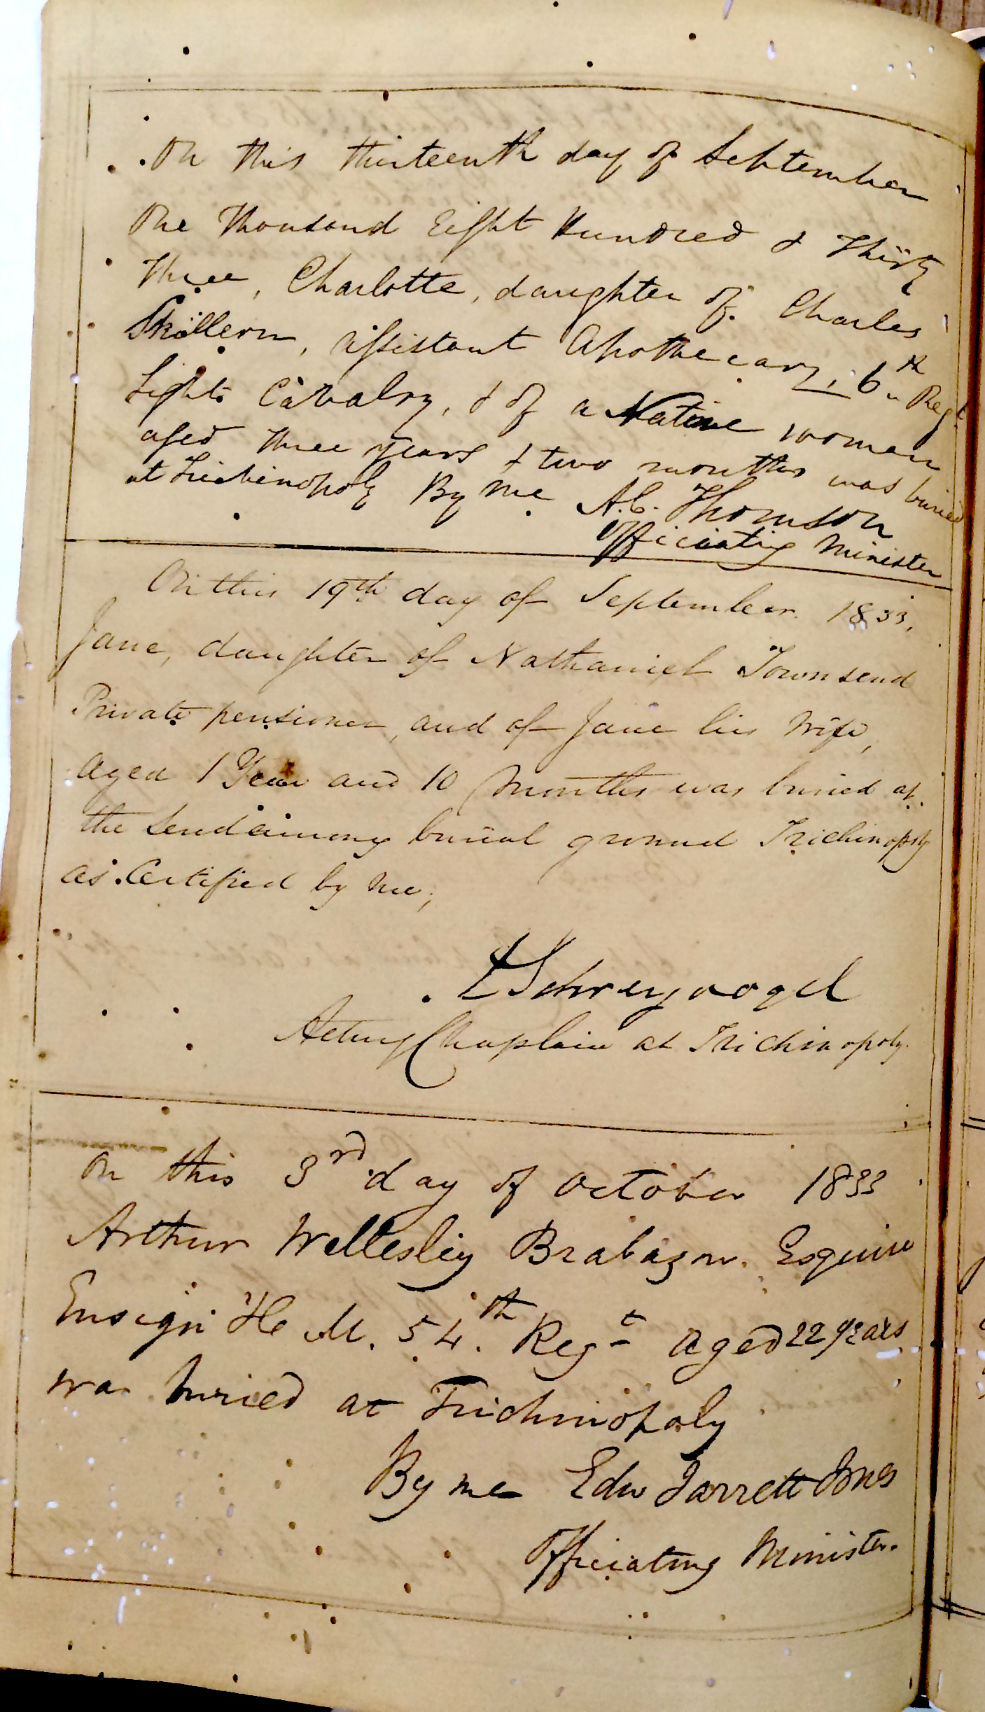 On this thirteenth day of September
One Thousand Eight Hundred & Thirty
Three, Charlotte, daughter of Charles
Skillern, assistant Apothecary, 6th Regt
Light Cavalry, & of a Native woman
aged three years & two months was buried
at Trichinopoly By me A.C. Thomson
Officiating Minister
On this 19th day of September 1833,
Jane, daughter of Nathaniel Townsend
Private pensioner, and of Jane his Wife,
Aged 1 Year and 10 Months was buried at
the burial ground Trichinopoly
as Certified by me,
Schreyvogel
Acting Chaplain at Trichinopoly.
On this 3rd day of October 1833
Arthur Wellesley Brabazon Esquire
Ensign H. M. 54th Regt aged 22 years
was buried at Trichinopoly
By me Edw Jarrett Jones
Officiating Minister.